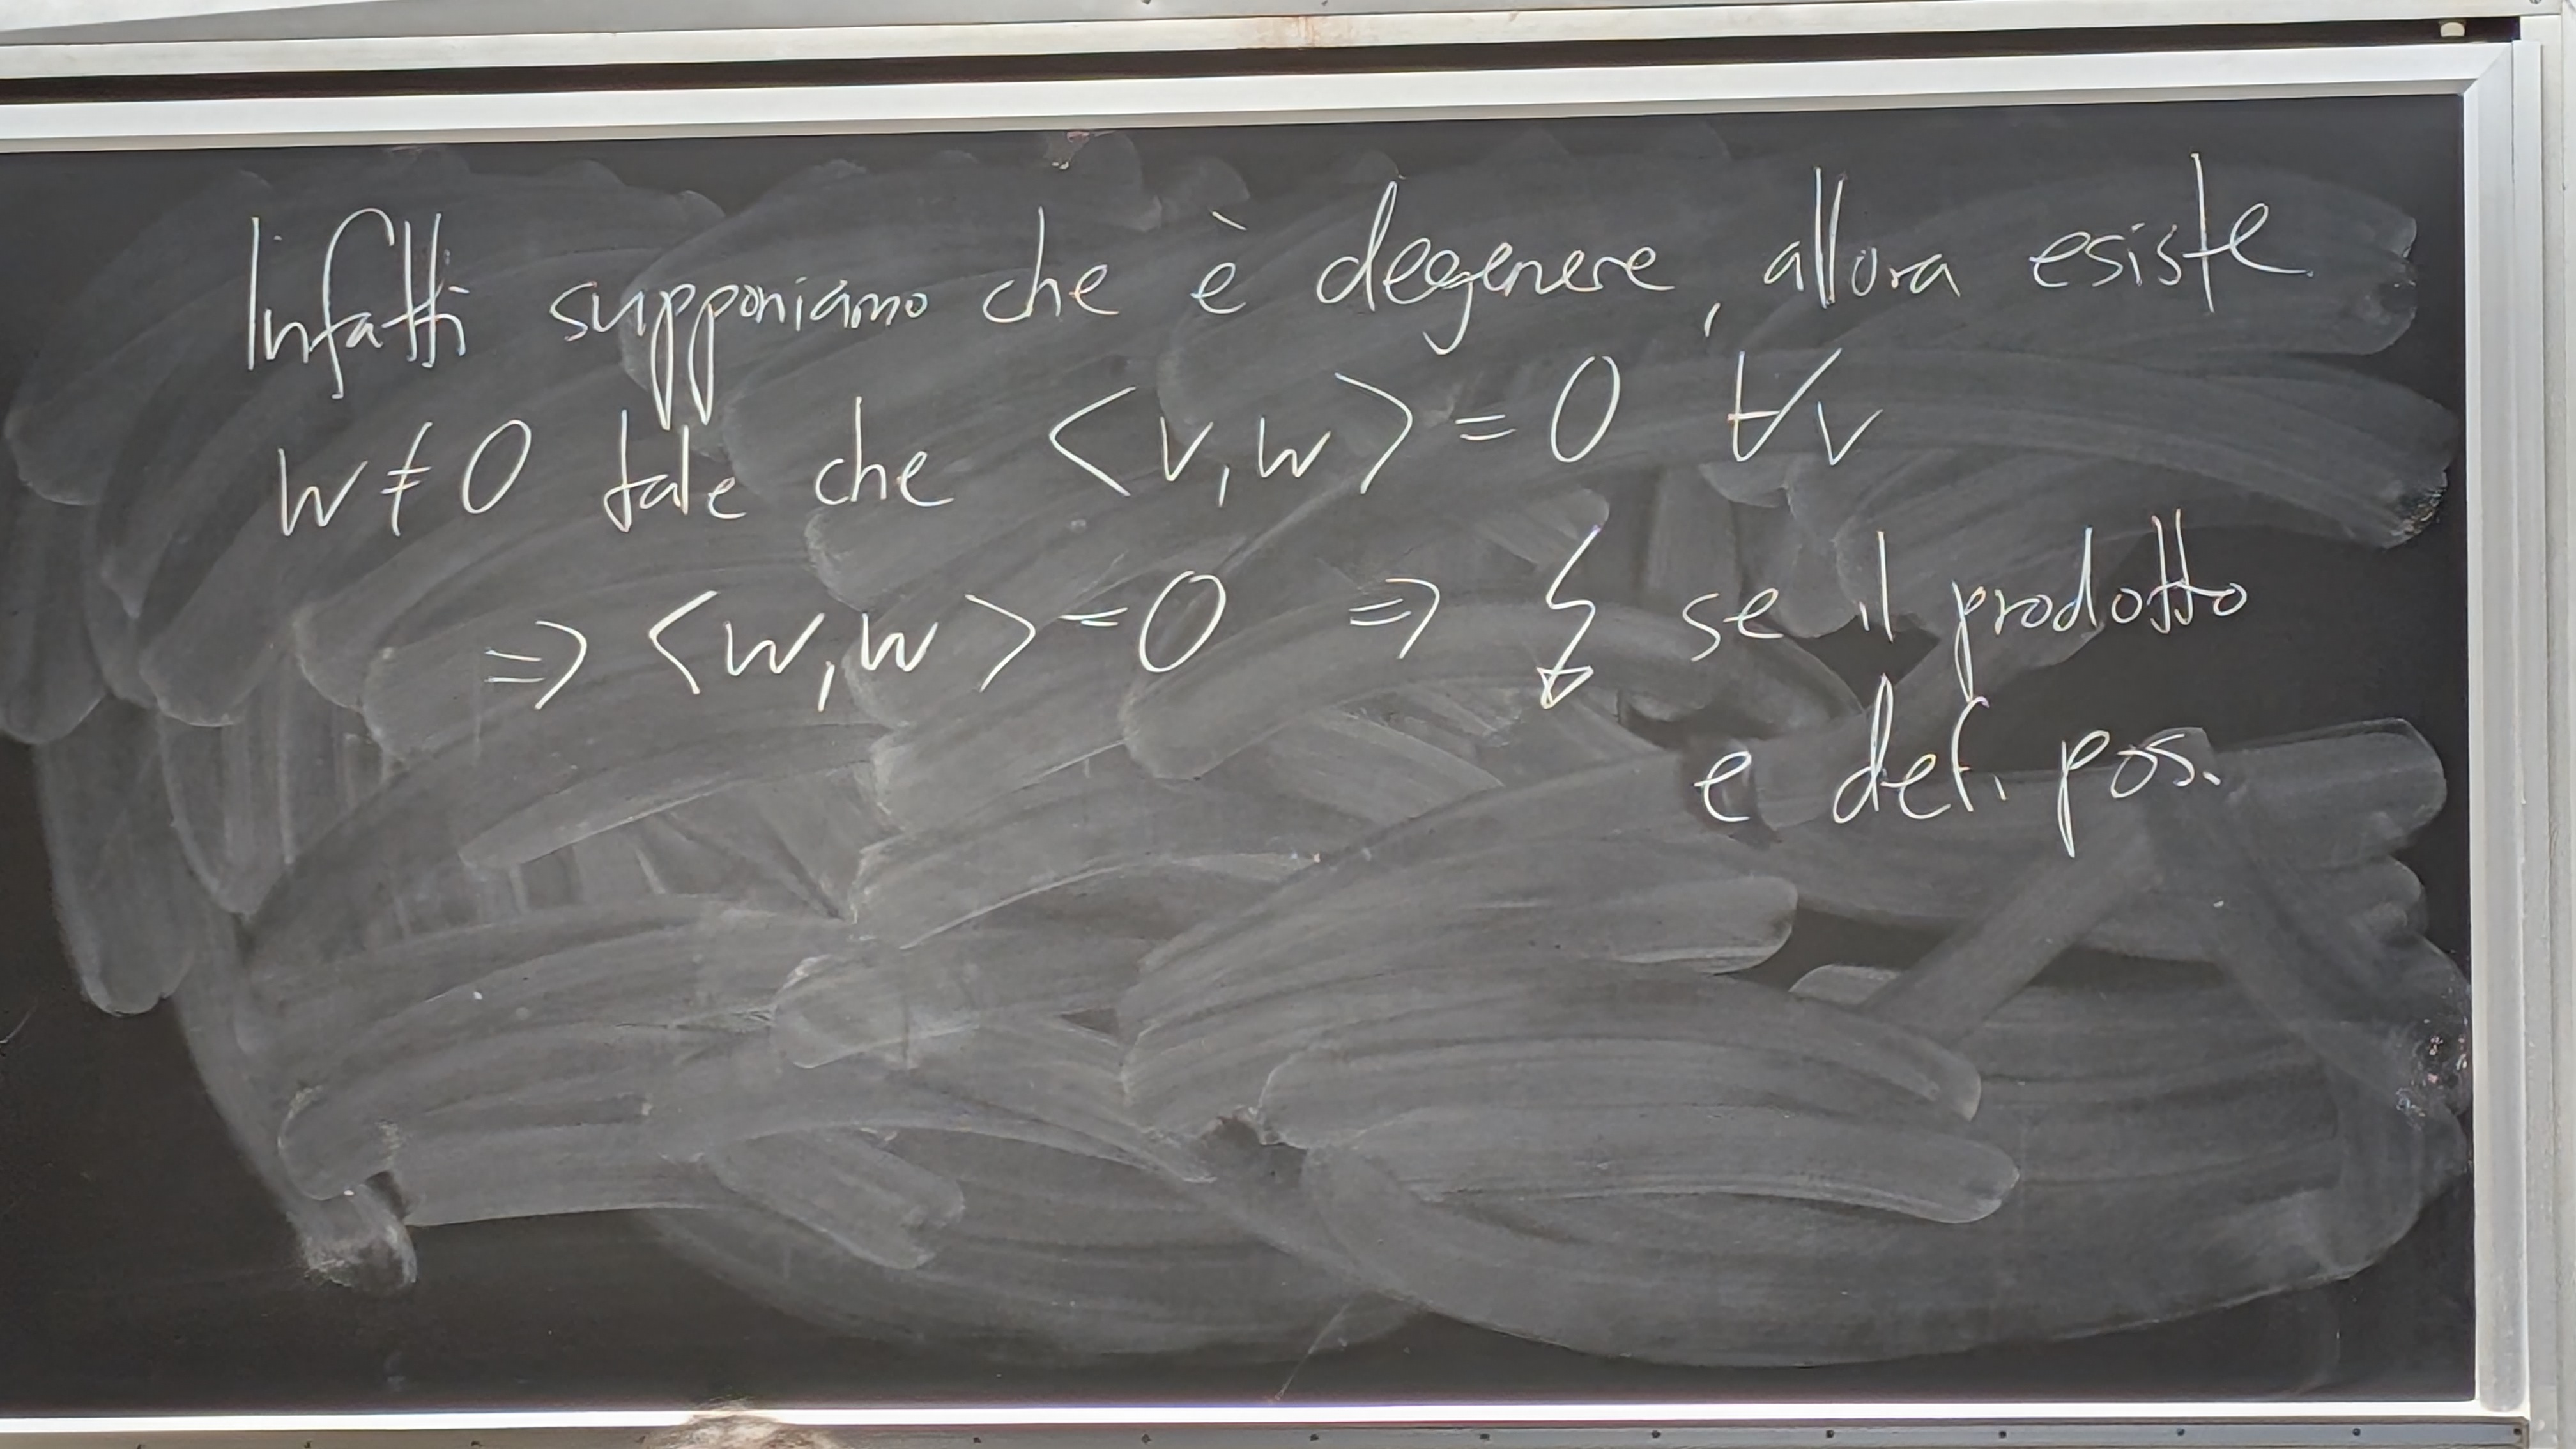 Infatti supponiamo che è degenere, allora esiste
w ≠ 0 tale che <v, w> = 0 ∀v
⇒ <w, w> = 0 ⇒ ↯ se il prodotto
e def. pos.